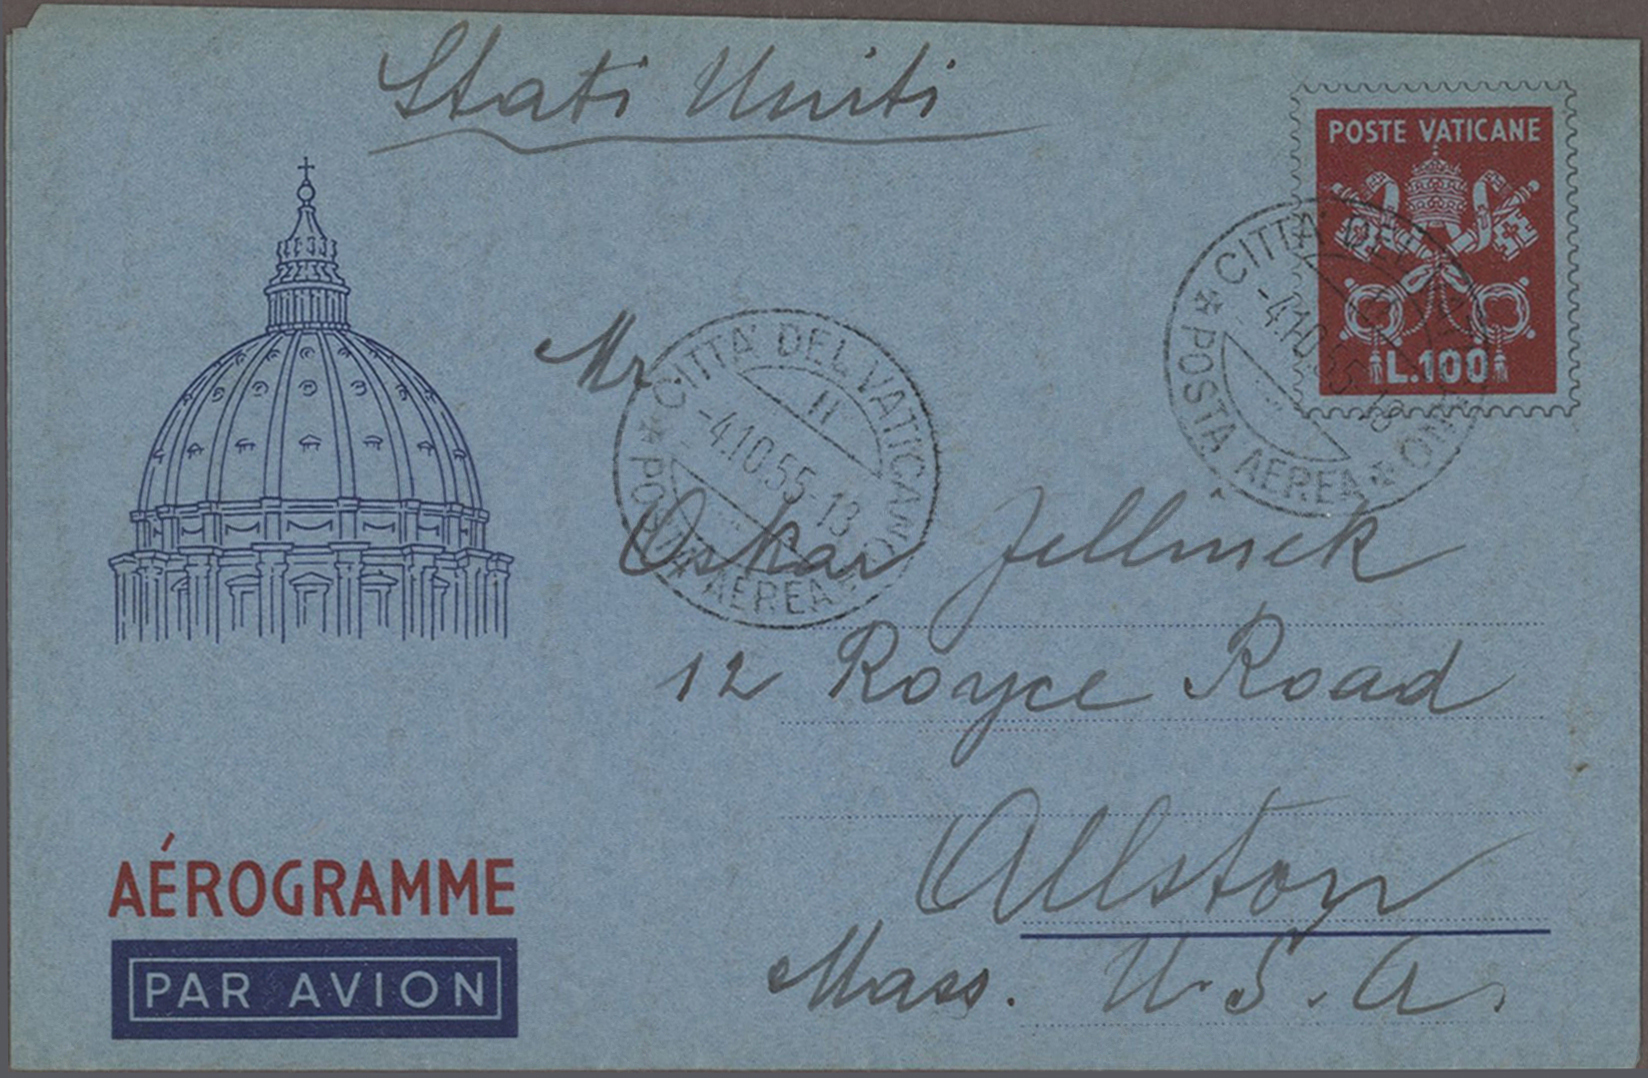 Stati Uniti
POSTE VATICANE
L.100
CITTA' DEL VATICANO
POSTA AEREA
-4.10.55-13
Mr
CITTA' DEL VATICANO
II
-4.10.55-13
POSTA AEREA
Oskar Jellinek
12 Royce Road
Allston
Mass. U.S.A.
AÉROGRAMME
PAR AVION